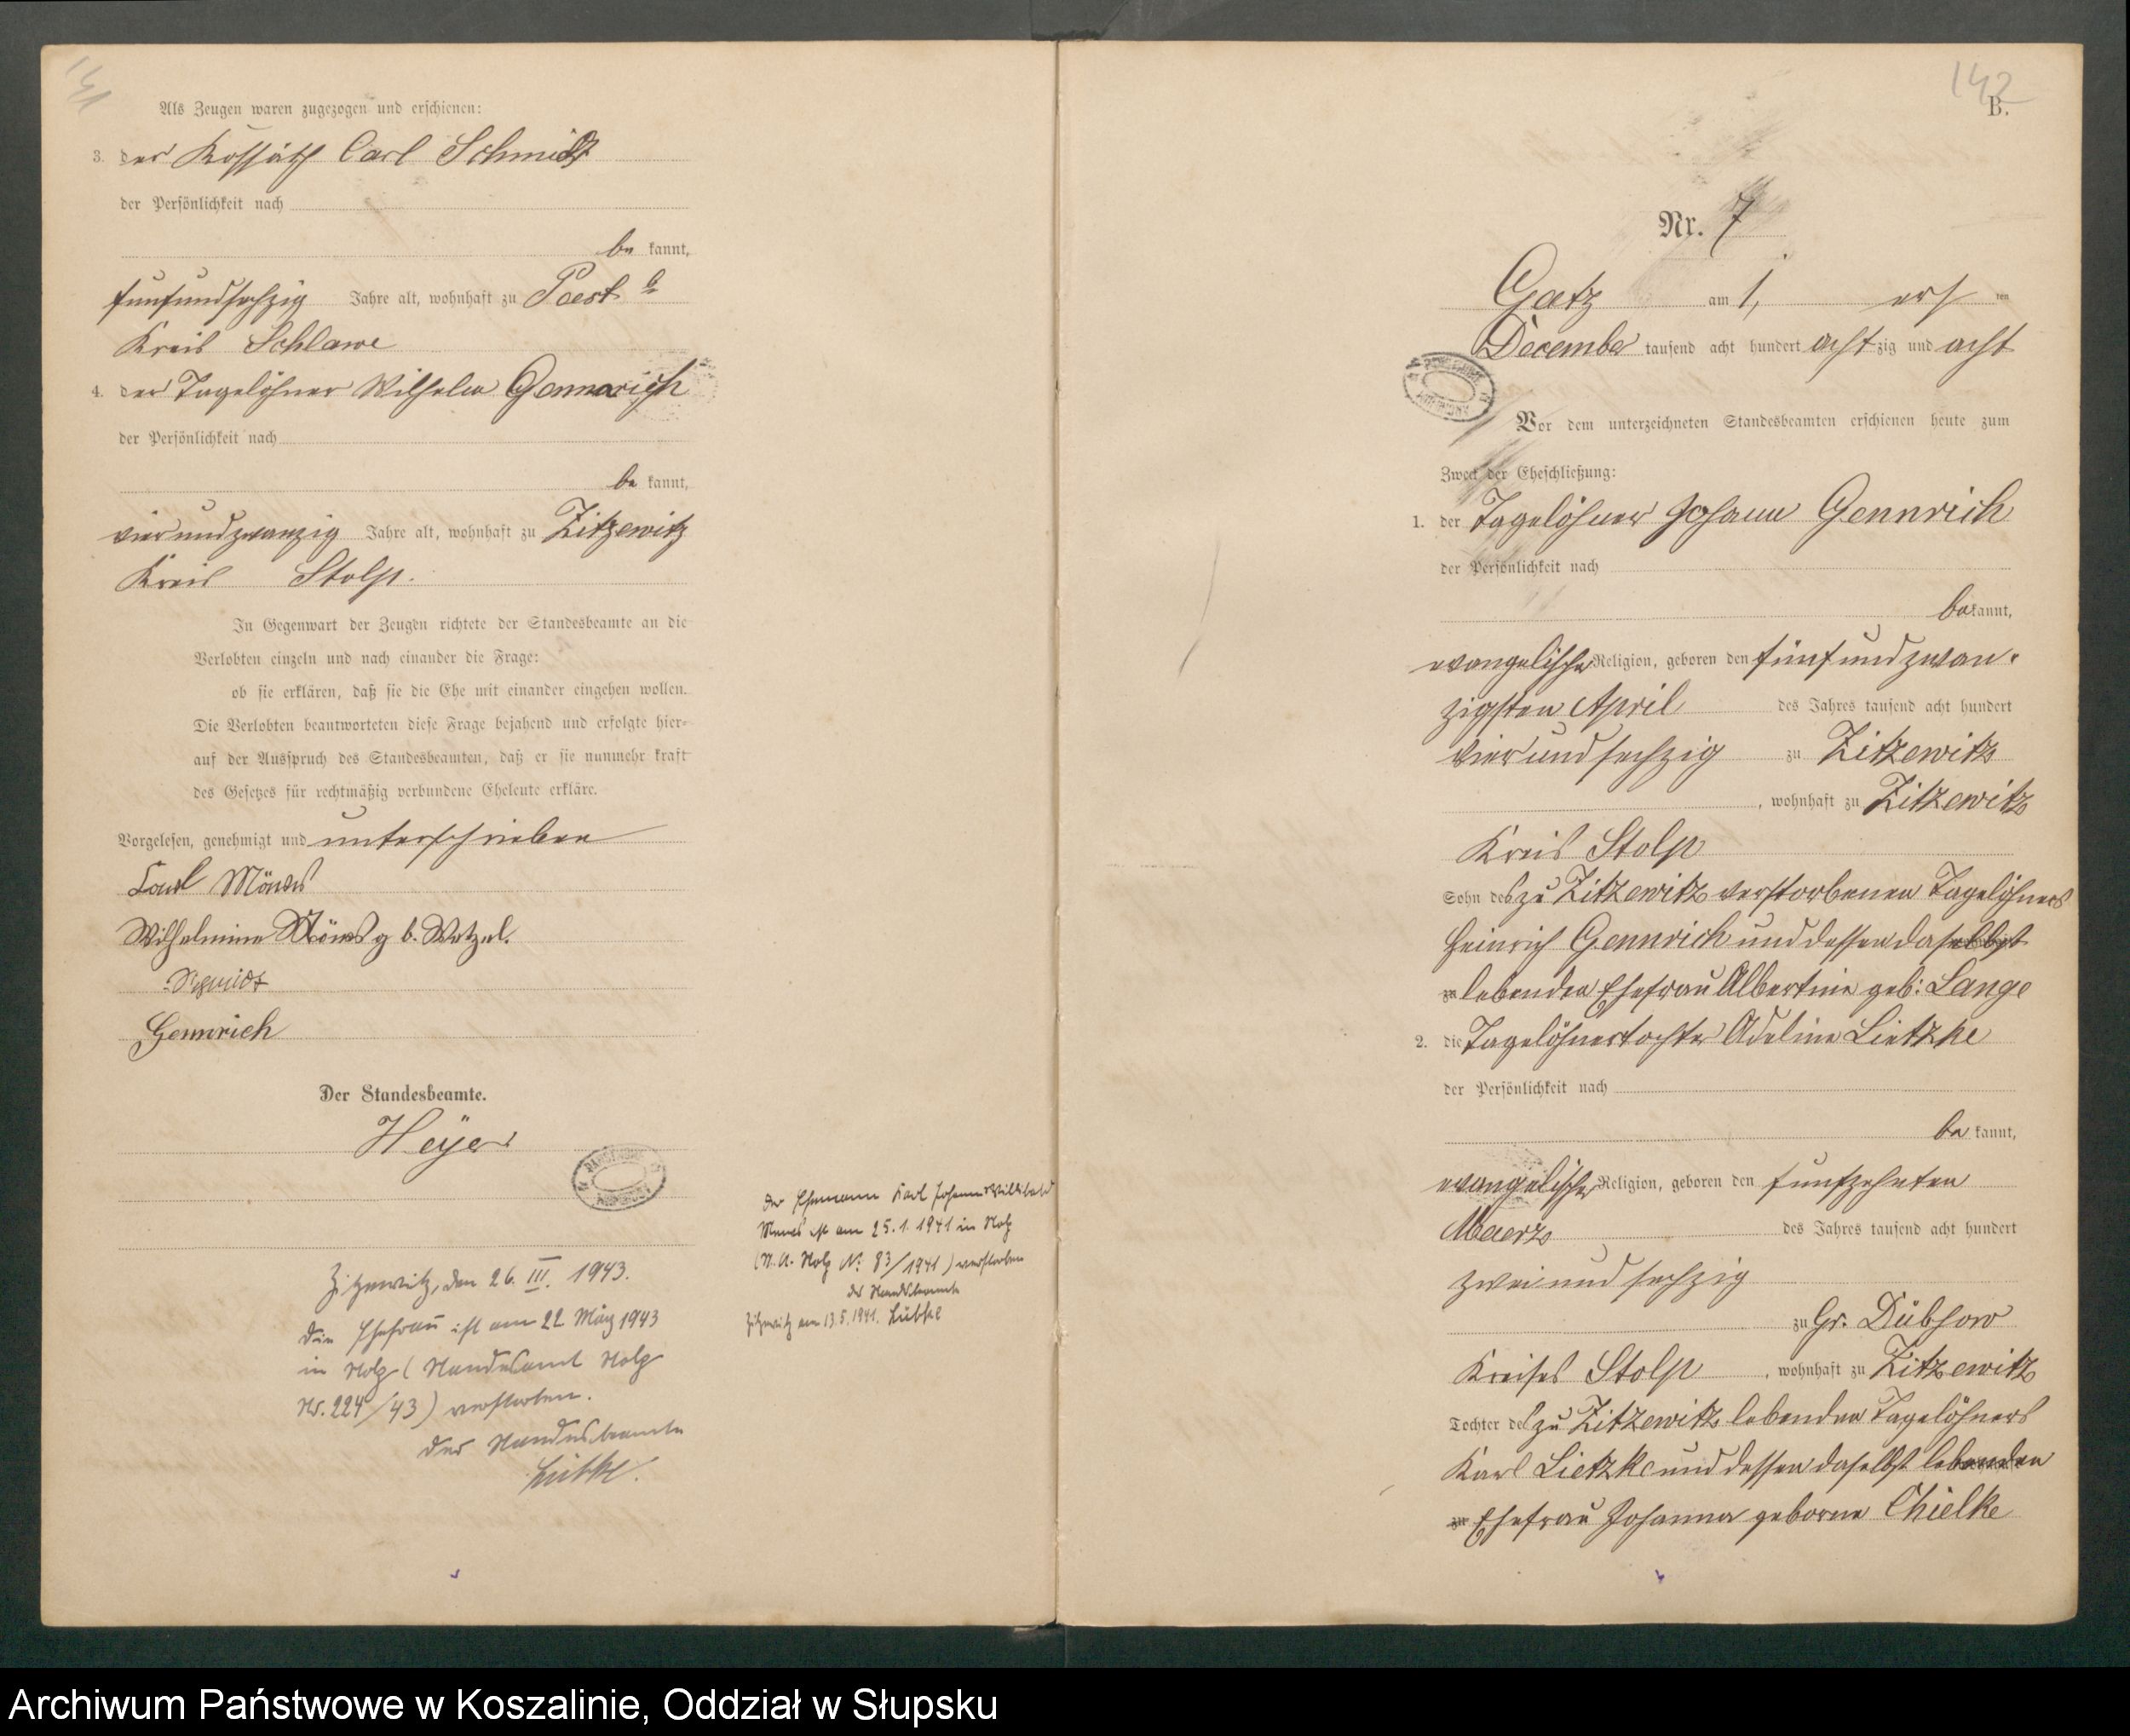 141
Als Zeugen waren zugezogen und erschienen:
3. der Kossäth Carl Schmidt
der Persönlichkeit nach
be kannt,
fünfundsechzig Jahre alt, wohnhaft zu Peest
Kreis Schlawe
4. der Tagelöhner Wilhelm Gennrich
der Persönlichkeit nach
be kannt,
vierundzwanzig Jahre alt, wohnhaft zu Zitzewitz
Kreis Stolp.
In Gegenwart der Zeugen richtete der Standesbeamte an die
Verlobten einzeln und nach einander die Frage:
ob sie erklären, daß sie die Ehe mit einander eingehen wollen.
Die Verlobten beantworteten diese Frage bejahend und erfolgte hier-
auf der Ausspruch des Standesbeamten, daß er sie nunmehr kraft
des Gesetzes für rechtmäßig verbundene Eheleute erkläre.
Vorgelesen, genehmigt und unterschrieben
Carl Möws
Wilhelmine Möws geb. Wetzel.
Schmidt
Gennrich
Der Standesbeamte.
Heyer
Zitzewitz, den 26. III. 1943.
Die Ehefrau ist am 22 März 1943
in Stolp (Standesamt Stolp
Nr. 224/43) verstorben.
Der Standesbeamte
Lübke.
Der Ehemann Karl Johann Willibald
ist am 25.1.1941 in Stolp
(St. A. Stolp Nr. 83/1941) verstorben
der Standesbeamte
Zitzewitz am 13.5.1941. Lübke
142
B.
Nr. 7
Gatz am 1, ersten
December tausend acht hundert achtzig und acht
Vor dem unterzeichneten Standesbeamten erschienen heute zum
Zweck der Eheschließung:
1. der Tagelöhner Johann Gennrich
der Persönlichkeit nach
be kannt,
evangelischer Religion, geboren den fünfundzwan-
zigsten April des Jahres tausend acht hundert
vierundsechzig zu Zitzewitz
, wohnhaft zu Zitzewitz
Kreis Stolp
Sohn des zu Zitzewitz verstorbenen Tagelöhners
Heinrich Gennrich und dessen daselbst
zu lebenden Ehefrau Albertine geb: Lange
2. die Tagelöhnertochter Adeline Lietzke
der Persönlichkeit nach
be kannt,
evangelischer Religion, geboren den fünfzehnten
Maerz des Jahres tausend acht hundert
zweiundsechzig
zu Gr. Dübsow
Kreises Stolp, wohnhaft zu Zitzewitz
Tochter des zu Zitzewitz lebenden Tagelöhners
Karl Lietzke und dessen daselbst lebenden
zu Ehefrau Johanna geborne Thielke
Archiwum Państwowe w Koszalinie, Oddział w Słupsku